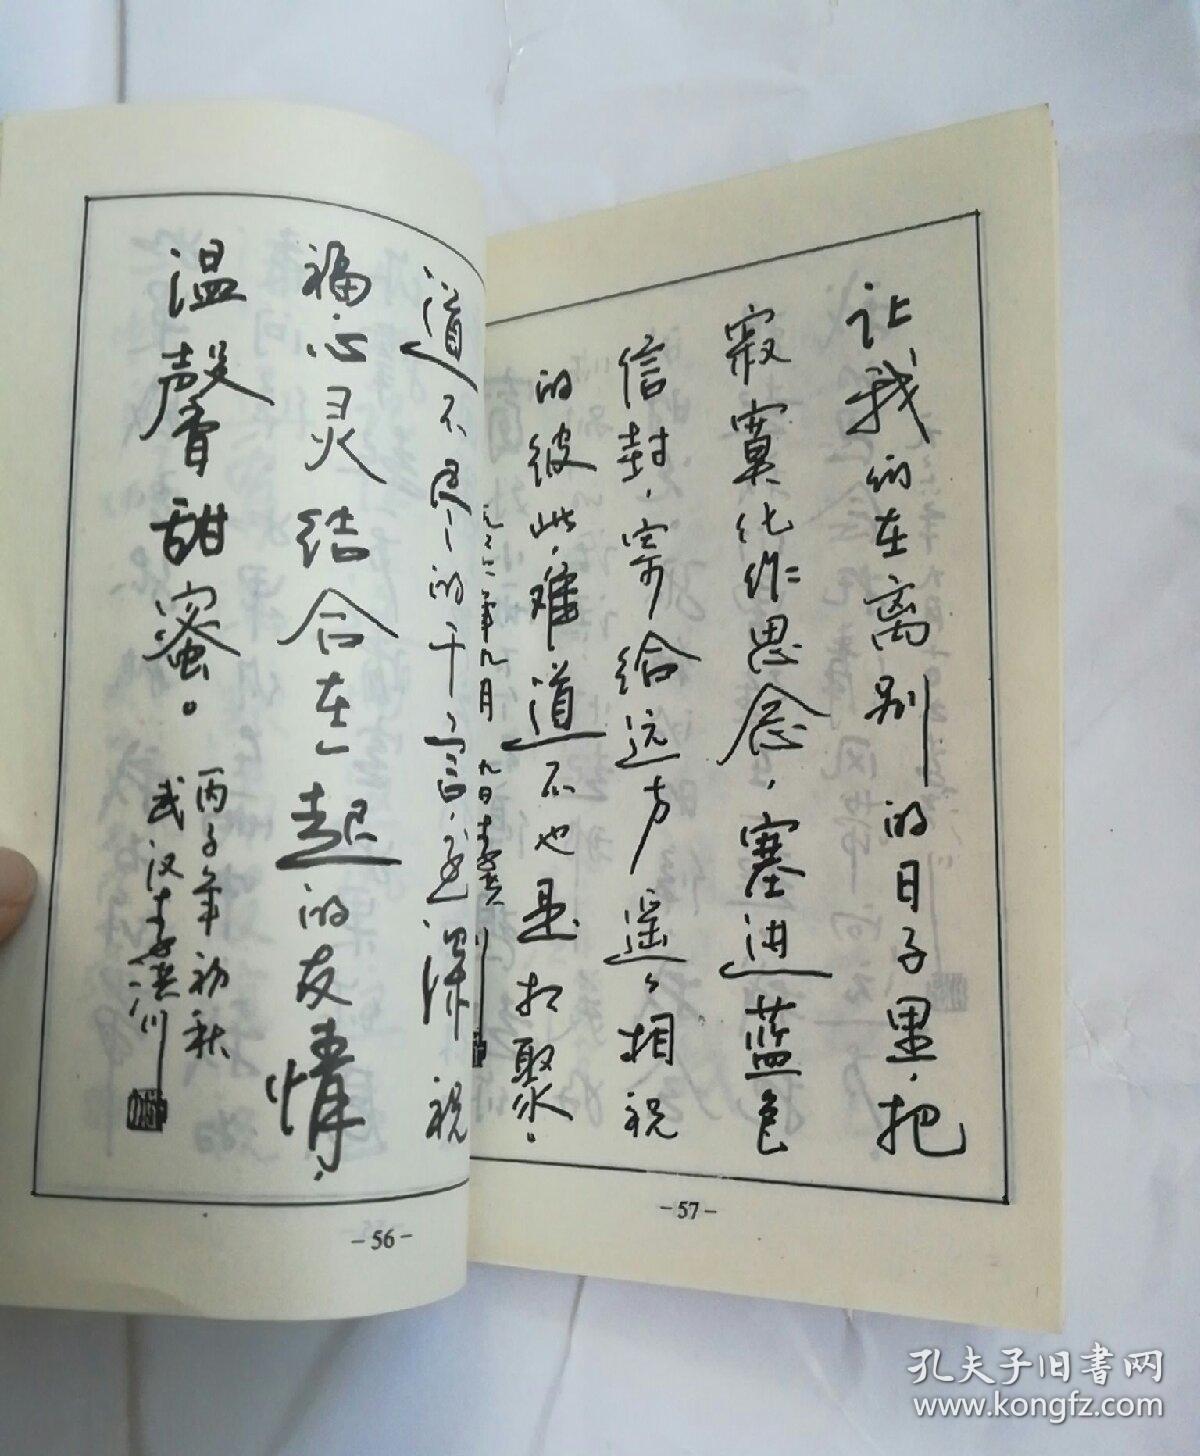 道不尽的千言,道深祝
福心灵结合在一起的友情,
温馨甜蜜。
丙子年初秋
武汉李洪川
-56-
让我们在离别的日子里,把
寂寞化作思念,塞进蓝色
信封,寄给远方遥遥相祝
的彼此,难道不也是相聚。
年九月
九日李
-57-
孔夫子旧书网
www.kongfz.com